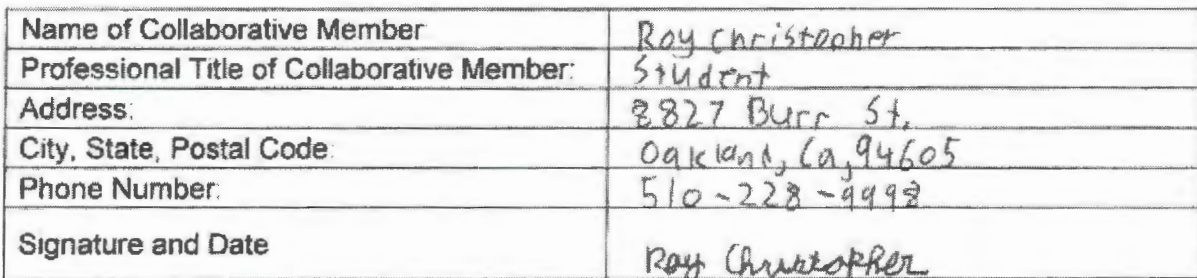 Name of Collaborative Member Roy Christopher
Professional Title of Collaborative Member: Student
Address: 8827 Burr St.
City, State, Postal Code: Oakland, Ca, 94605
Phone Number: 510-228-9998
Signature and Date Roy Christopher